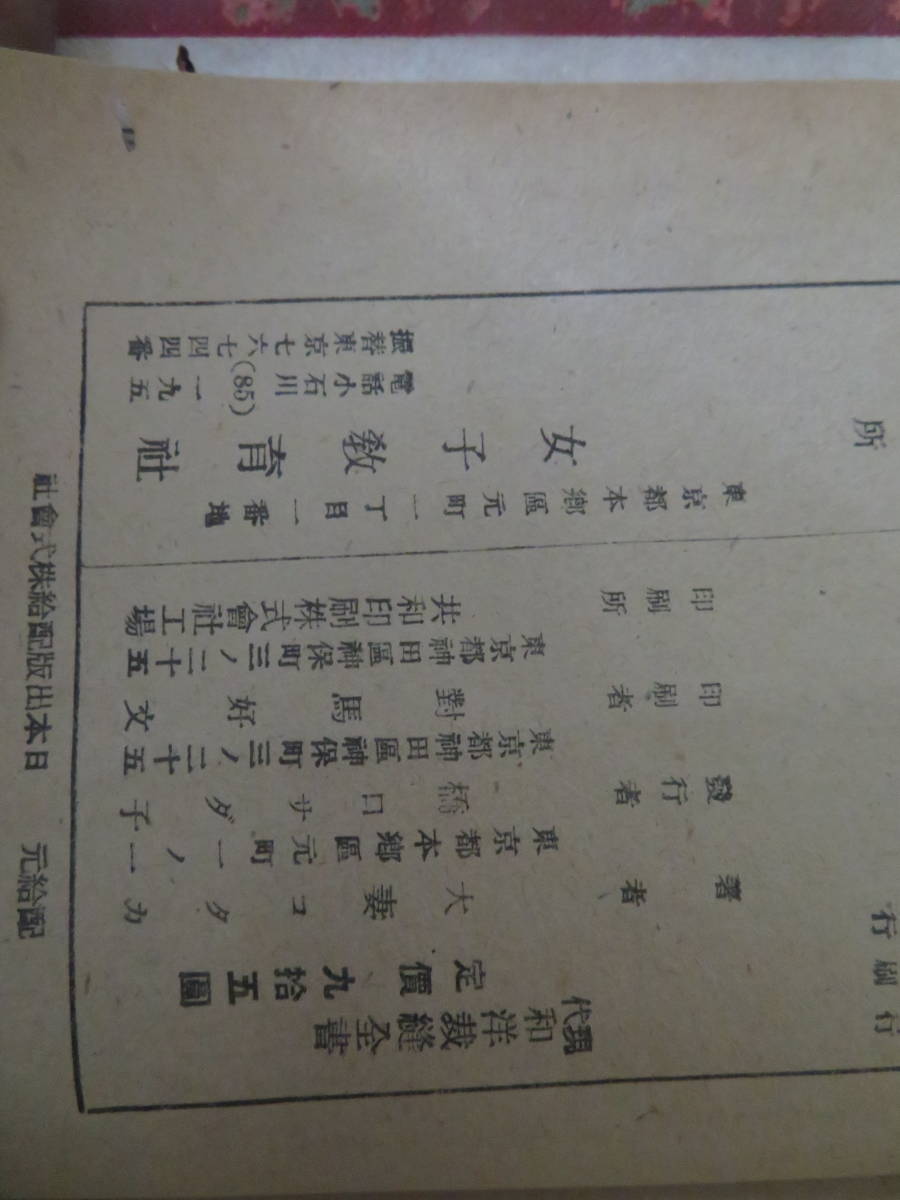 行
刷
行
現代
和洋裁縫全書
定價九拾五圓
著者 大妻コタカ
東京都本鄕區元町一ノ一
發行者 橋口サダ子
東京都神田區神保町三ノ二十五
印刷者 對馬好文
東京都神田區神保町三ノ二十五
印刷所 共和印刷株式會社工場
東京都本鄕區元町一丁目一番地
所 女子敎育社
電話小石川(85)一九五
振替東京七六七四四番
配給元 日本出版配給株式會社